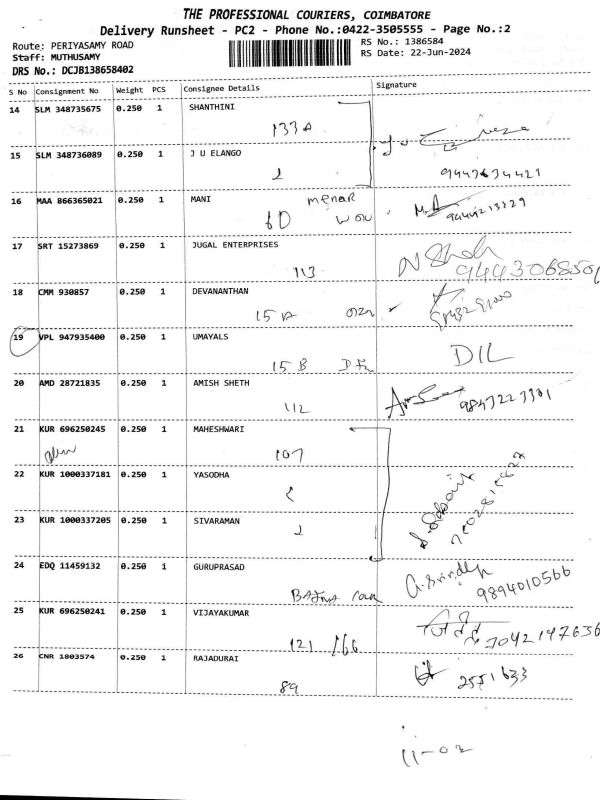 THE PROFESSIONAL COURIERS, COIMBATORE
Delivery Runsheet - PC2 - Phone No.:0422-3505555 - Page No.:2
Route: PERIYASAMY ROAD
RS No.: 1386584
Staff: MUTHUSAMY
RS Date: 22-Jun-2024
DRS No.: DCJB138658402
S No Consignment No Weight PCS Consignee Details Signature
14 SLM 348735675 0.250 1 SHANTHINI
133A
15 SLM 348736089 0.250 1 J U ELANGO
9443634421
16 MAA 866365021 0.250 1 MANI
60
17 SRT 15273869 0.250 1 JUGAL ENTERPRISES
113
18 CMM 930857 0.250 1 DEVANANTHAN
15 A
19 VPL 947935400 0.250 1 UMAYALS
15 B DIL
20 AMD 28721835 0.250 1 AMISH SHETH
112 9843223301
21 KUR 696250245 0.250 1 MAHESHWARI
107
22 KUR 1000337181 0.250 1 YASODHA
23 KUR 1000337205 0.250 1 SIVARAMAN
24 EDQ 11459132 0.250 1 GURUPRASAD
9894010566
25 KUR 696250241 0.250 1 VIJAYAKUMAR
121 /66 7042147636
26 CNR 1803574 0.250 1 RAJADURAI
89 2551633
11-02